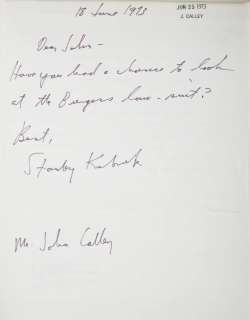 18 June 1973
JUN 25 1973
J. CALLEY
Dear John -
Have you had a chance to look
at the Burgess law-suit?
Best,
Stanley Kubrick
Mr. John Calley